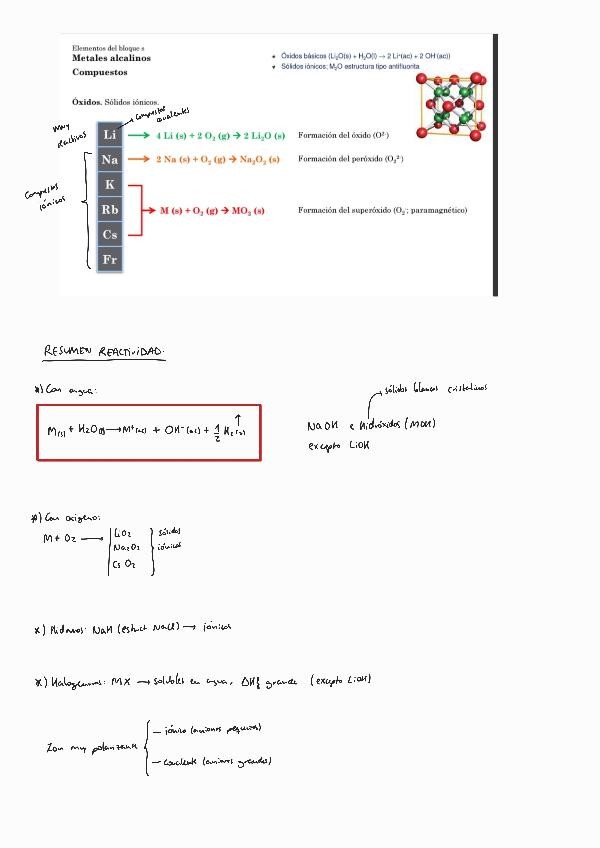 Elementos del bloque s
Metales alcalinos
Compuestos
• Óxidos básicos (Li₂O(s) + H₂O(l) → 2 Li⁺(ac) + 2 OH⁻(ac))
• Sólidos iónicos; M₂O estructura tipo antifluorita
Óxidos. Sólidos iónicos.
Muy reactivos
compuestos covalentes
Compuestos iónicos
Li
4 Li (s) + 2 O₂ (g) → 2 Li₂O (s)
Formación del óxido (O²⁻)
Na
2 Na (s) + O₂ (g) → Na₂O₂ (s)
Formación del peróxido (O₂²⁻)
K
Rb
M (s) + O₂ (g) → MO₂ (s)
Formación del superóxido (O₂⁻; paramagnético)
Cs
Fr
RESUMEN REACTIVIDAD.
*) Con agua:
M(s) + H₂O(l) → M⁺(ac) + OH⁻(ac) + 1/2 H₂(g) ↑
sólidos blancos cristalinos
NaOH e hidróxidos (MOH)
excepto LiOH
*) Con oxígeno:
M + O₂ →
LiO₂
Na₂O₂
CsO₂
sólidos
iónicos
*) Hidruros: NaH (estruct NaCl) → iónicos
*) Halogenuros: MX → solubles en agua, ΔHf grande (excepto LiOH)
Ion muy polarizante
– iónico (aniones pequeños)
– covalente (aniones grandes)